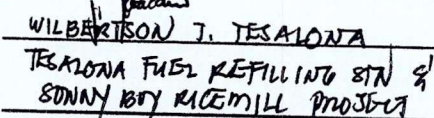 WILBERTSON J. TESALONA
TESALONA FUEL REFILLING STN &
SONNY BOY RICEMILL PROJECT